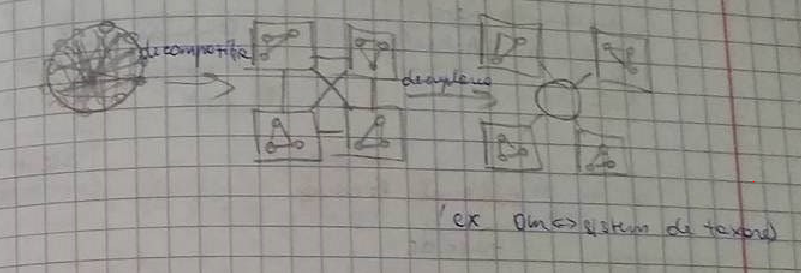 decompoziție
decuplare
(ex om <> sistem de taxare)